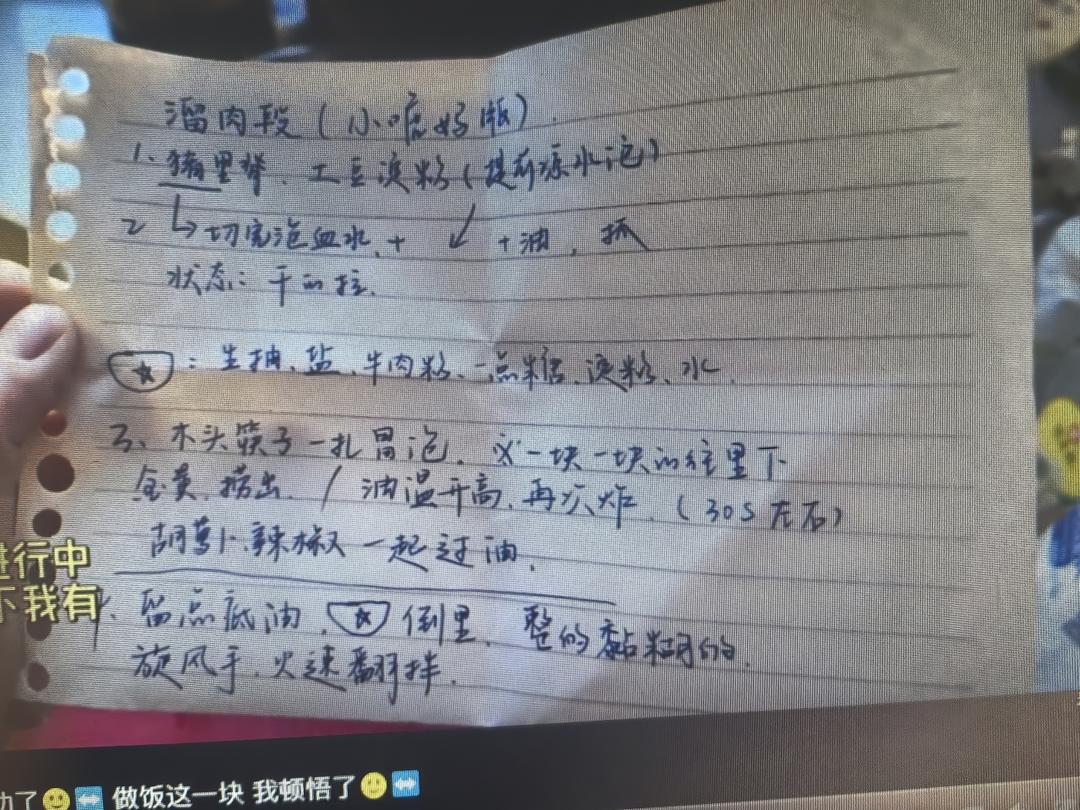 溜肉段（小嗷好版）.
1. 猪里脊、土豆淀粉（提前凉水泡）
2 ↳切完泡血水, + ↙ +油, 抓
状态：干的拉.
☆：生抽、盐、牛肉粉、一点糖、淀粉、水.
3、木头筷子一扎冒泡. ※一块一块的往里下
金黄, 捞出. / 油温升高, 再次炸. (30S左右)
胡萝卜、辣椒一起过油.
4. 留点底油, ☆倒里, 整的黏糊的.
旋风手, 火速翻拌.
进行中
不我有
功了🙂↔️ 做饭这一块 我顿悟了🙂↔️